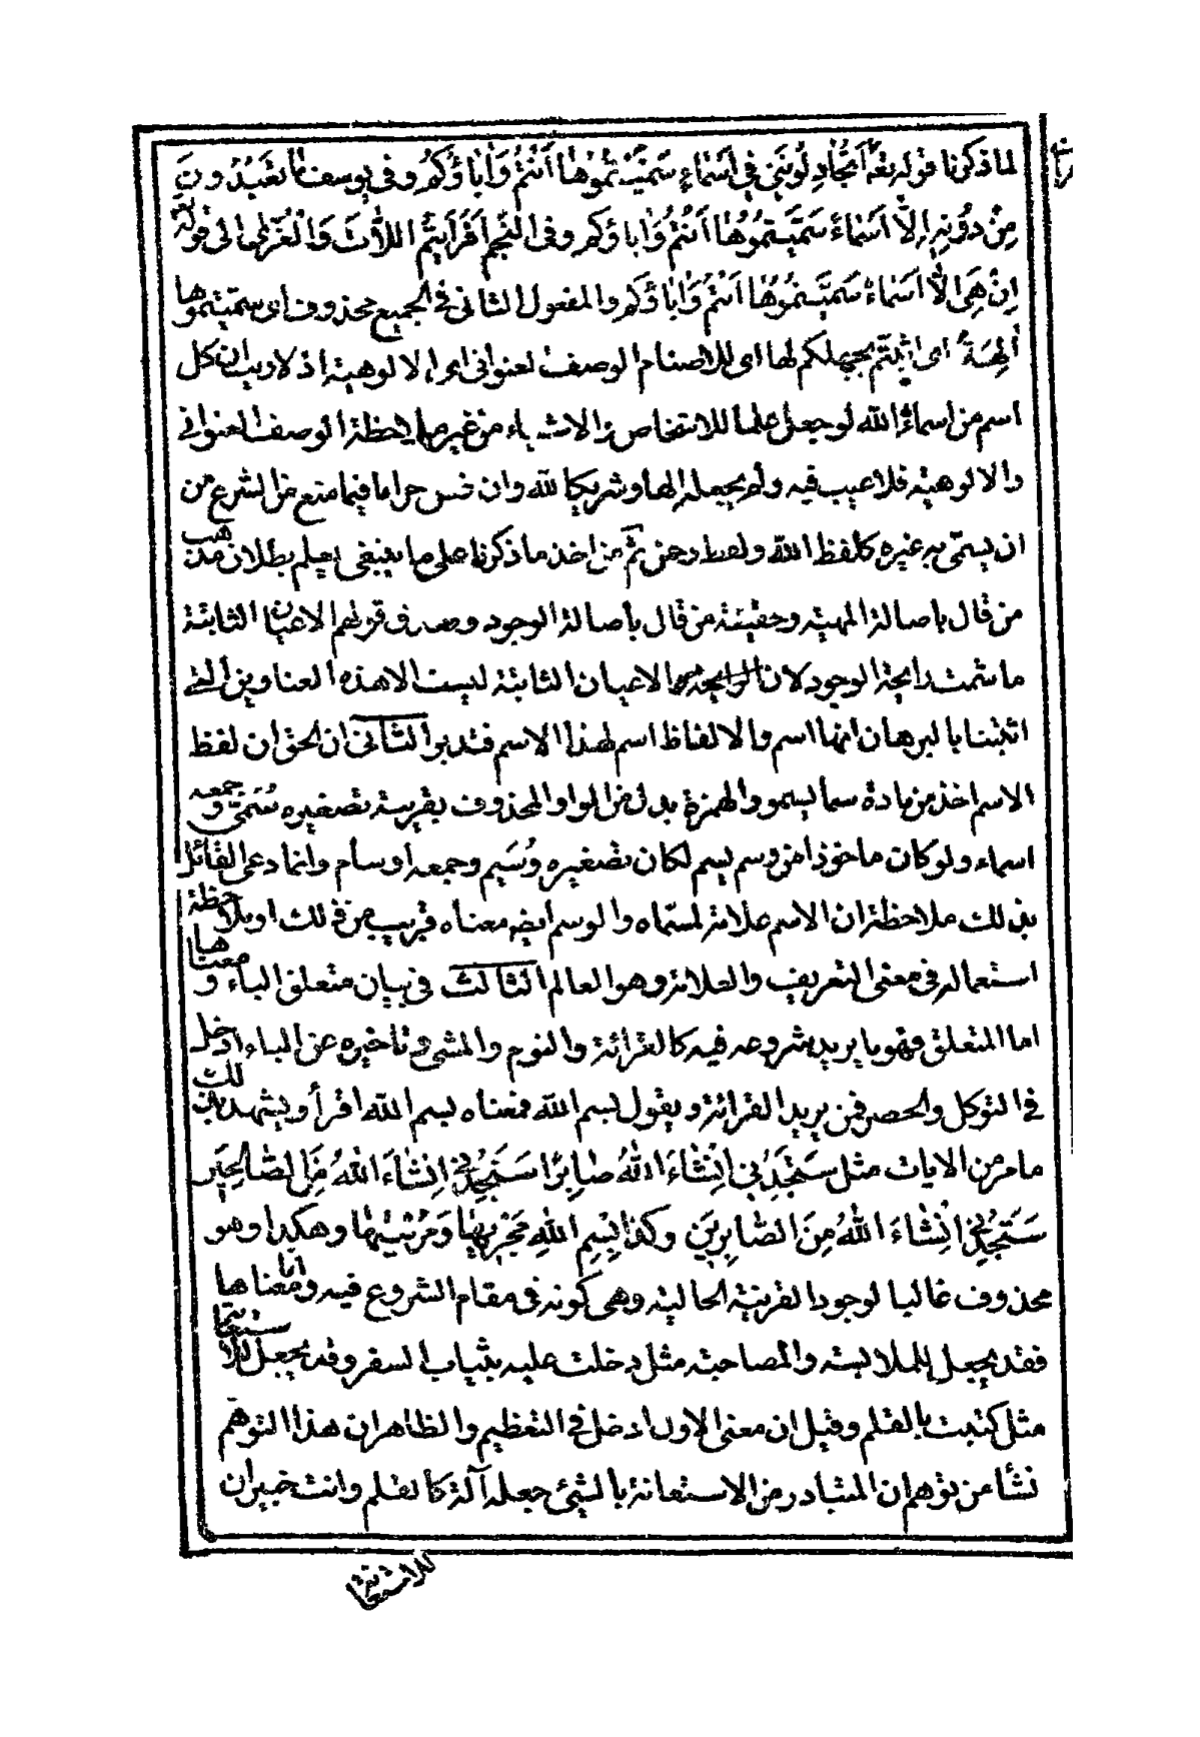 لما ذكرنا قوله تعه اَتُجَادِلُونَنِي فِي اَسْمَاءٍ سَمَّيْتُمُوهَا اَنْتُمْ وَاٰبَاؤُكُمْ وفي يوسف مٰا تَعْبُدُونَ
مِنْ دُونِهِ اِلَّا اَسْمَاءً سَمَّيْتُمُوهَا اَنْتُمْ وَاٰباؤكم وفى النجم اَفَرَاَيْتُمُ اللَّاتَ وَالْعُزّٰى الى قوله
اِنْ هِىَ اِلَّا اَسْمَاءٌ سَمَّيْتُمُوهَا اَنْتُمْ وَاٰبَاؤُكُمْ والمفعول الثانى فى الجميع محذوف اى سمّيتموها
اٰلِهَةً اى اثبتّم بجهلكم لها اى للاصنام الوصف العنوانى اى الالوهية اذ لا ريب ان كل
اسم من اسماء الله لو جعل علما للاشخاص والاشياء من غير ملاحظة الوصف العنوانى
والالوهية فلا عيب فيه ولم يجعله الها وشريكا لله وان حراما فيما منع من الشرع من
ان يسمّى به غيره كلفظ الله ولفظ رحمن ثمّ من اخذ ما ذكرنا على ما ينبغى يعلم بطلان مذهب
من قال باصالة المهية وحقيقة من قال بأصالة الوجود و قولهم الاعيان الثابتة
ما شمت رائحة الوجود لان الاعيان الثابتة ليست الا هذه العناوين التى
اثبتنا بالبرهان انها اسم والالفاظ اسم لهذا الاسم فتدبر الثانى ان الحق ان لفظ
الاسم اخذ من مادة سما يسمو والهمزة بدل من الواو المحذوف بقرينة تصغيره سُمَىّ و جمعه
اسماء ولو كان ماخوذا من وسم يسم لكان تصغيره وُسَيم وجمعه اوسام وانما دعى القائل
بذلك ملاحظة ان الاسم علامة لمسمّاه والوسم ايضه معناه قريب من ذلك او بملاحظة
استعماله فى معنى التعريف والعلامة وهو العالم الثالث فى بيان متعلق الباء و معناها
اما المتعلق فهو ما يريد شروعه فيه كالقرائة والنوم والمشى وتاخيره عن الباء ادخل
فى التوكل والحصر فمن يريد القرائة ويقول بسم الله فمعناه بسم الله اقرأ ويشهد بذلك
ما مر من الايات مثل سَتَجِدُنِى اِنْشَاءَ اللهُ صٰابِرًا سَتَجِدُنِى اِنْشَاءَ اللهُ مِنَ الصَّالِحِينَ
سَتَجِدُنِى اِنْشَاءَ اللهُ مِنَ الصَّابِرِينَ وكذا بِسْمِ اللهِ مَجْرٰيهَا وَمُرْسٰيهَا وهكذا وهو
محذوف غالبا لوجود القرينة الحالية وهى كونه فى مقام الشروع فيه واما معناها
فقد يجعل للملابسة والمصاحبة مثل دخلت عليه بثياب السفر وقد يجعل للاستعانة
مثل كتبت بالقلم وقيل ان معنى الاول ادخل فى التعظيم والظاهر ان هذا التوهم
نشأ من توهم ان المتبادر من الاستعانة بالشيئ جعله آلة كالقلم وانت خبير ان
للاستعانة